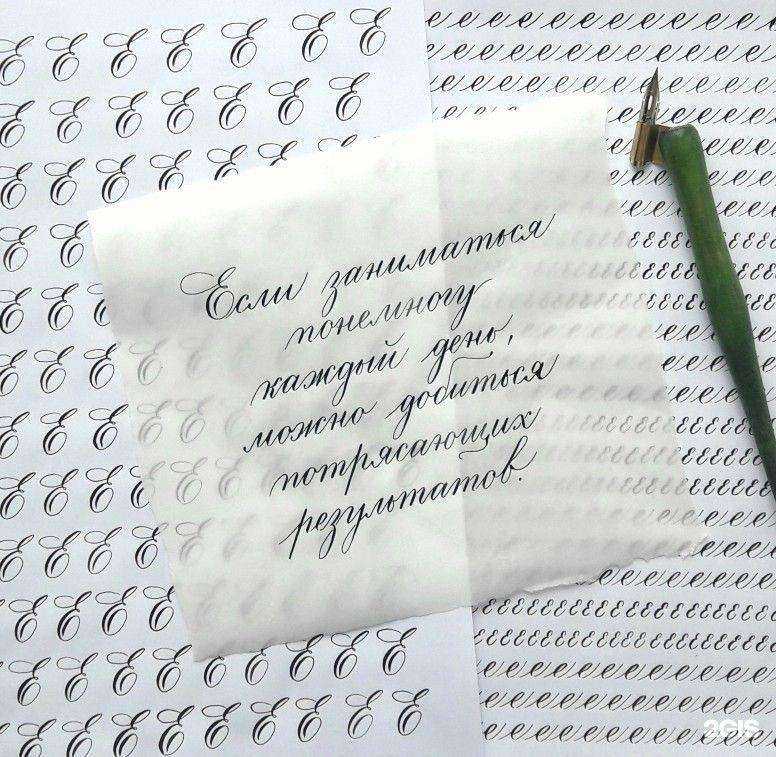 Если заниматься
понемногу
каждый день,
можно добиться
потрясающих
результатов.
2GIS